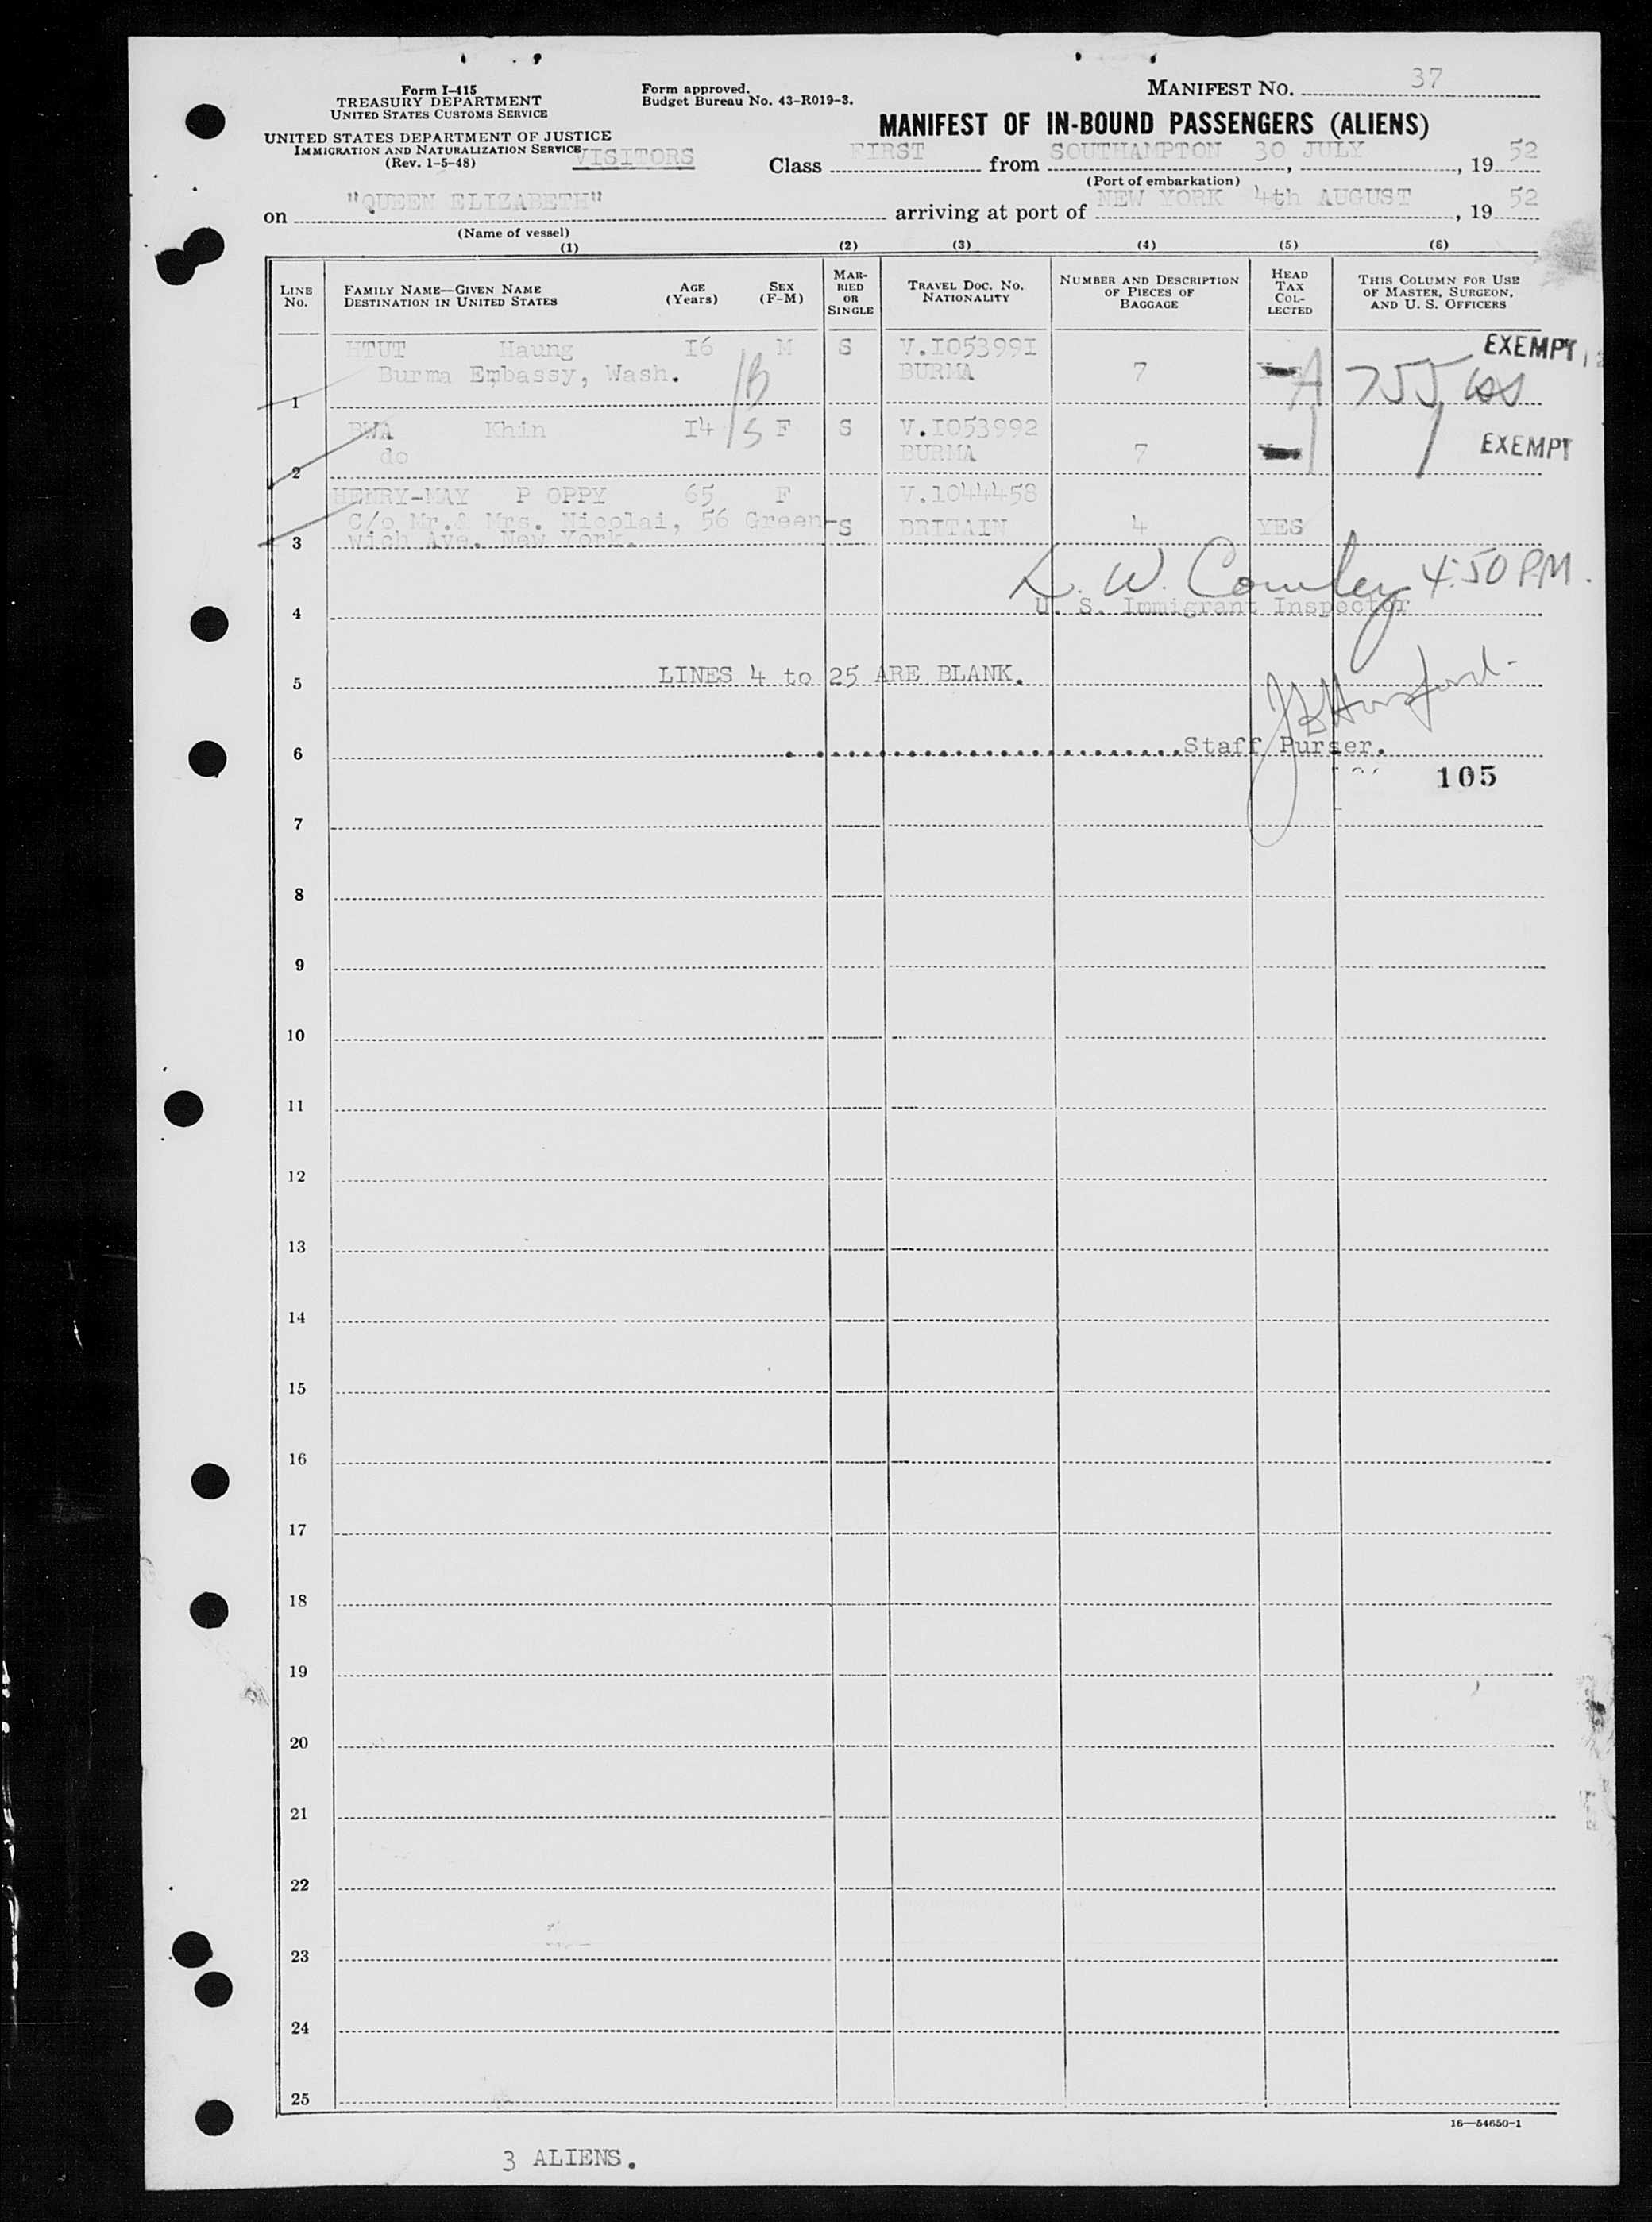 Form I-415
TREASURY DEPARTMENT
UNITED STATES CUSTOMS SERVICE
UNITED STATES DEPARTMENT OF JUSTICE
IMMIGRATION AND NATURALIZATION SERVICE
(Rev. 1-5-48)
VISITORS
Form approved.
Budget Bureau No. 43-R019-3.
MANIFEST NO. 37
MANIFEST OF IN-BOUND PASSENGERS (ALIENS)
Class FIRST from SOUTHAMPTON 30 JULY, 19 52
(Port of embarkation)
on "QUEEN ELIZABETH" arriving at port of NEW YORK 4th AUGUST, 19 52
(Name of vessel)
(1) (2) (3) (4) (5) (6)
LINE NO. FAMILY NAME—GIVEN NAME DESTINATION IN UNITED STATES AGE (Years) SEX (F-M) MARRIED OR SINGLE TRAVEL DOC. NO. NATIONALITY NUMBER AND DESCRIPTION OF PIECES OF BAGGAGE HEAD TAX COLLECTED THIS COLUMN FOR USE OF MASTER, SURGEON, AND U. S. OFFICERS
HTUT Haung I6 M S V.I05399I EXEMPT
Burma Embassy, Wash. BURMA 7 A 755
1
BWA Khin I4 F S V.I053992
do BURMA 7 EXEMPT
2
HENRY-MAY P OPPY 65 F V.1044458
C/o Mr.& Mrs. Nicolai, 56 Green- S BRITAIN 4 YES
3 wich Ave. New York.
4:50 PM.
4 U. S. Immigrant Inspector
5 LINES 4 to 25 ARE BLANK.
6 Staff Purser.
105
7
8
9
10
11
12
13
14
15
16
17
18
19
20
21
22
23
24
25
16—54650-1
3 ALIENS.